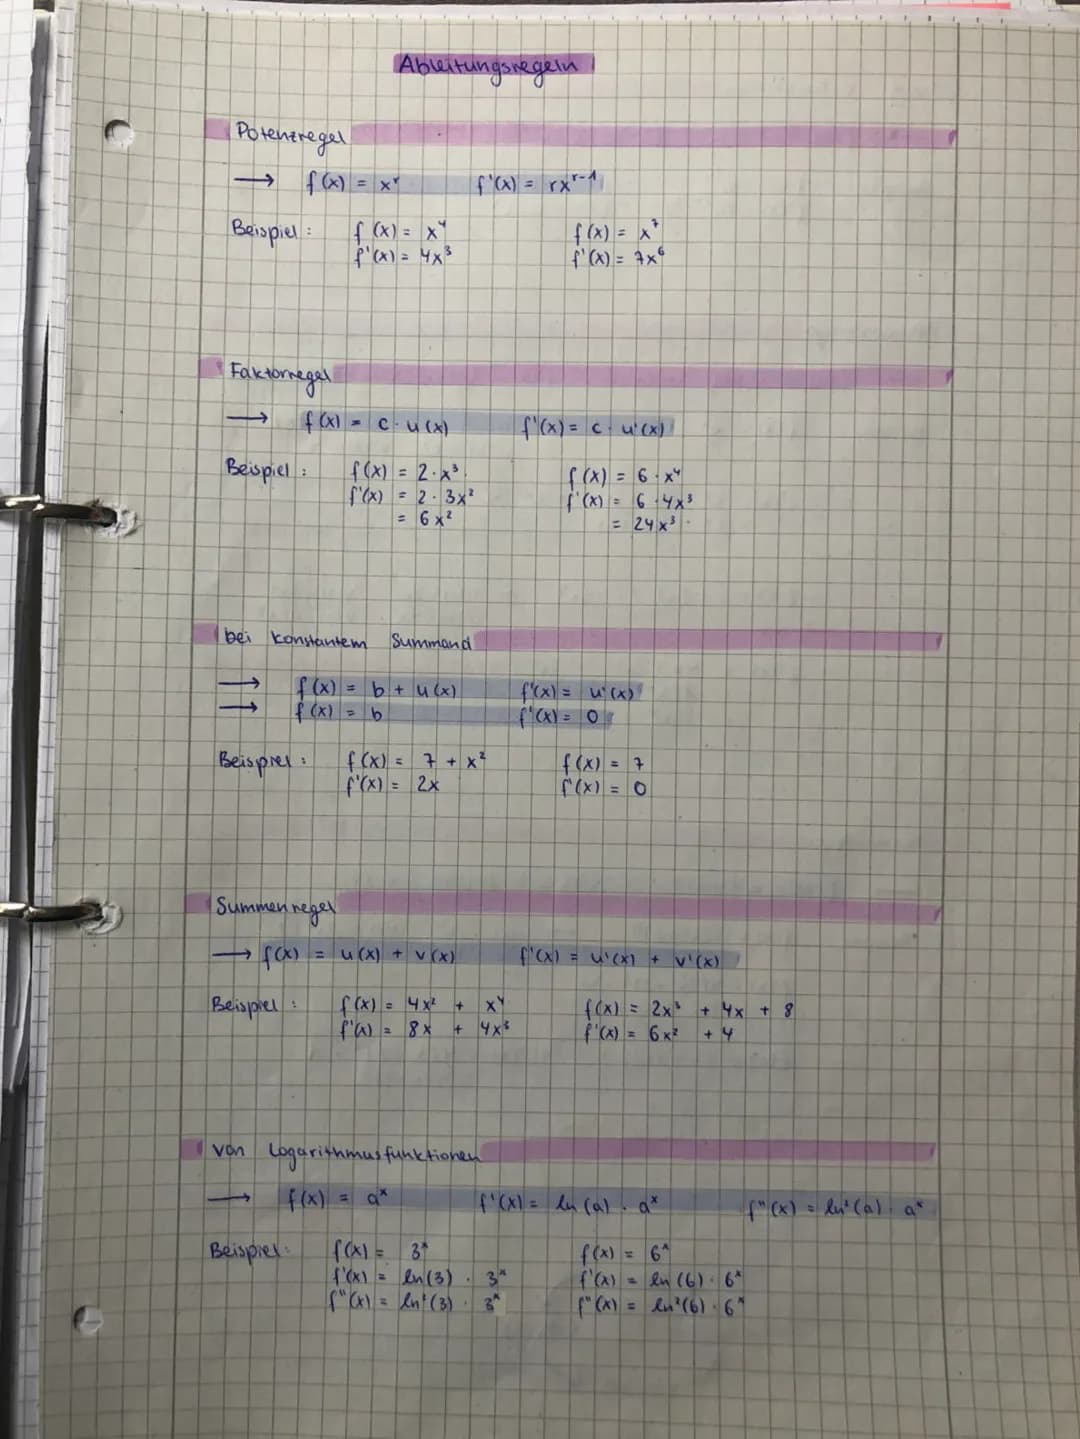 Ableitungsregeln
Potenzregel
→ f(x) = xʳ f'(x) = rxʳ⁻¹
Beispiel: f(x) = x⁴ f(x) = x⁷
f'(x) = 4x³ f'(x) = 7x⁶
Faktorregel
→ f(x) = c · u(x) f'(x) = c · u'(x)
Beispiel: f(x) = 2·x³ f(x) = 6·x⁴
f'(x) = 2·3x² f'(x) = 6·4x³
= 6x² = 24x³
bei konstantem Summand
→ f(x) = b + u(x) f'(x) = u'(x)
→ f(x) = b f'(x) = 0
Beispiel: f(x) = 7 + x² f(x) = 7
f'(x) = 2x f'(x) = 0
Summenregel
→ f(x) = u(x) + v(x) f'(x) = u'(x) + v'(x)
Beispiel: f(x) = 4x² + x⁴ f(x) = 2x³ + 4x + 8
f'(x) = 8x + 4x³ f'(x) = 6x² + 4
von Logarithmusfunktionen
→ f(x) = aˣ f'(x) = ln(a) · aˣ f''(x) = ln²(a) · aˣ
Beispiel: f(x) = 3ˣ f(x) = 6ˣ
f'(x) = ln(3) · 3ˣ f'(x) = ln(6) · 6ˣ
f''(x) = ln²(3) · 3ˣ f''(x) = ln²(6) · 6ˣ